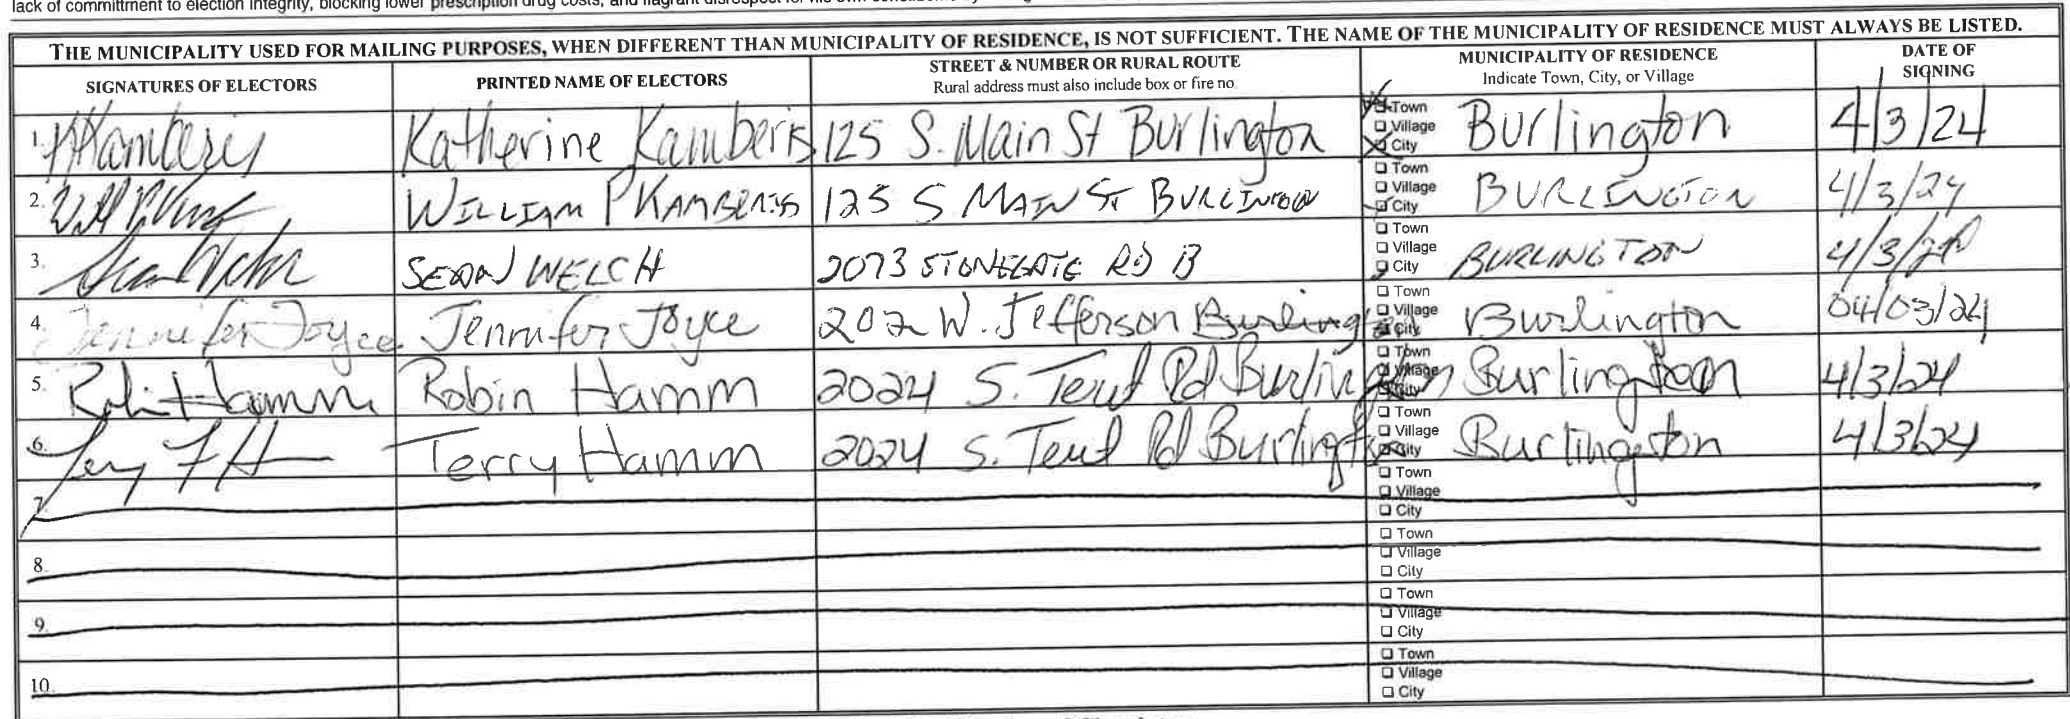 lack of committment to election integrity, blocking lower prescription drug costs, and flagrant disrespect for his own
THE MUNICIPALITY USED FOR MAILING PURPOSES, WHEN DIFFERENT THAN MUNICIPALITY OF RESIDENCE, IS NOT SUFFICIENT. THE NAME OF THE MUNICIPALITY OF RESIDENCE MUST ALWAYS BE LISTED.
SIGNATURES OF ELECTORS
PRINTED NAME OF ELECTORS
STREET & NUMBER OR RURAL ROUTE
Rural address must also include box or fire no.
MUNICIPALITY OF RESIDENCE
Indicate Town, City, or Village
DATE OF
SIGNING
1. KKamberis Katherine Kamberis 125 S. Main St Burlington
Town
Village
City
Burlington 4/3/24
2. WILLIAM P KAMBERIS 125 S MAIN ST BURLINGTON
Town
Village
City
BURLINGTON 4/3/24
3. SEAN WELCH 2073 STONEGATE RD B
Town
Village
City
BURLINGTON 4/3/24
4. Jennifer Joyce Jennifer Joyce 202 W. Jefferson Burling
Town
Village
City
Burlington 04/03/24
5. Robin Hamm Robin Hamm 2024 S. Teut Rd Burlington
Town
Village
City
Burlington 4/3/24
6. Terry Hamm 2024 S. Teut Rd Burlington
Town
Village
City
Burlington 4/3/24
7.
Town
Village
City
8.
Town
Village
City
9.
Town
Village
City
10.
Town
Village
City